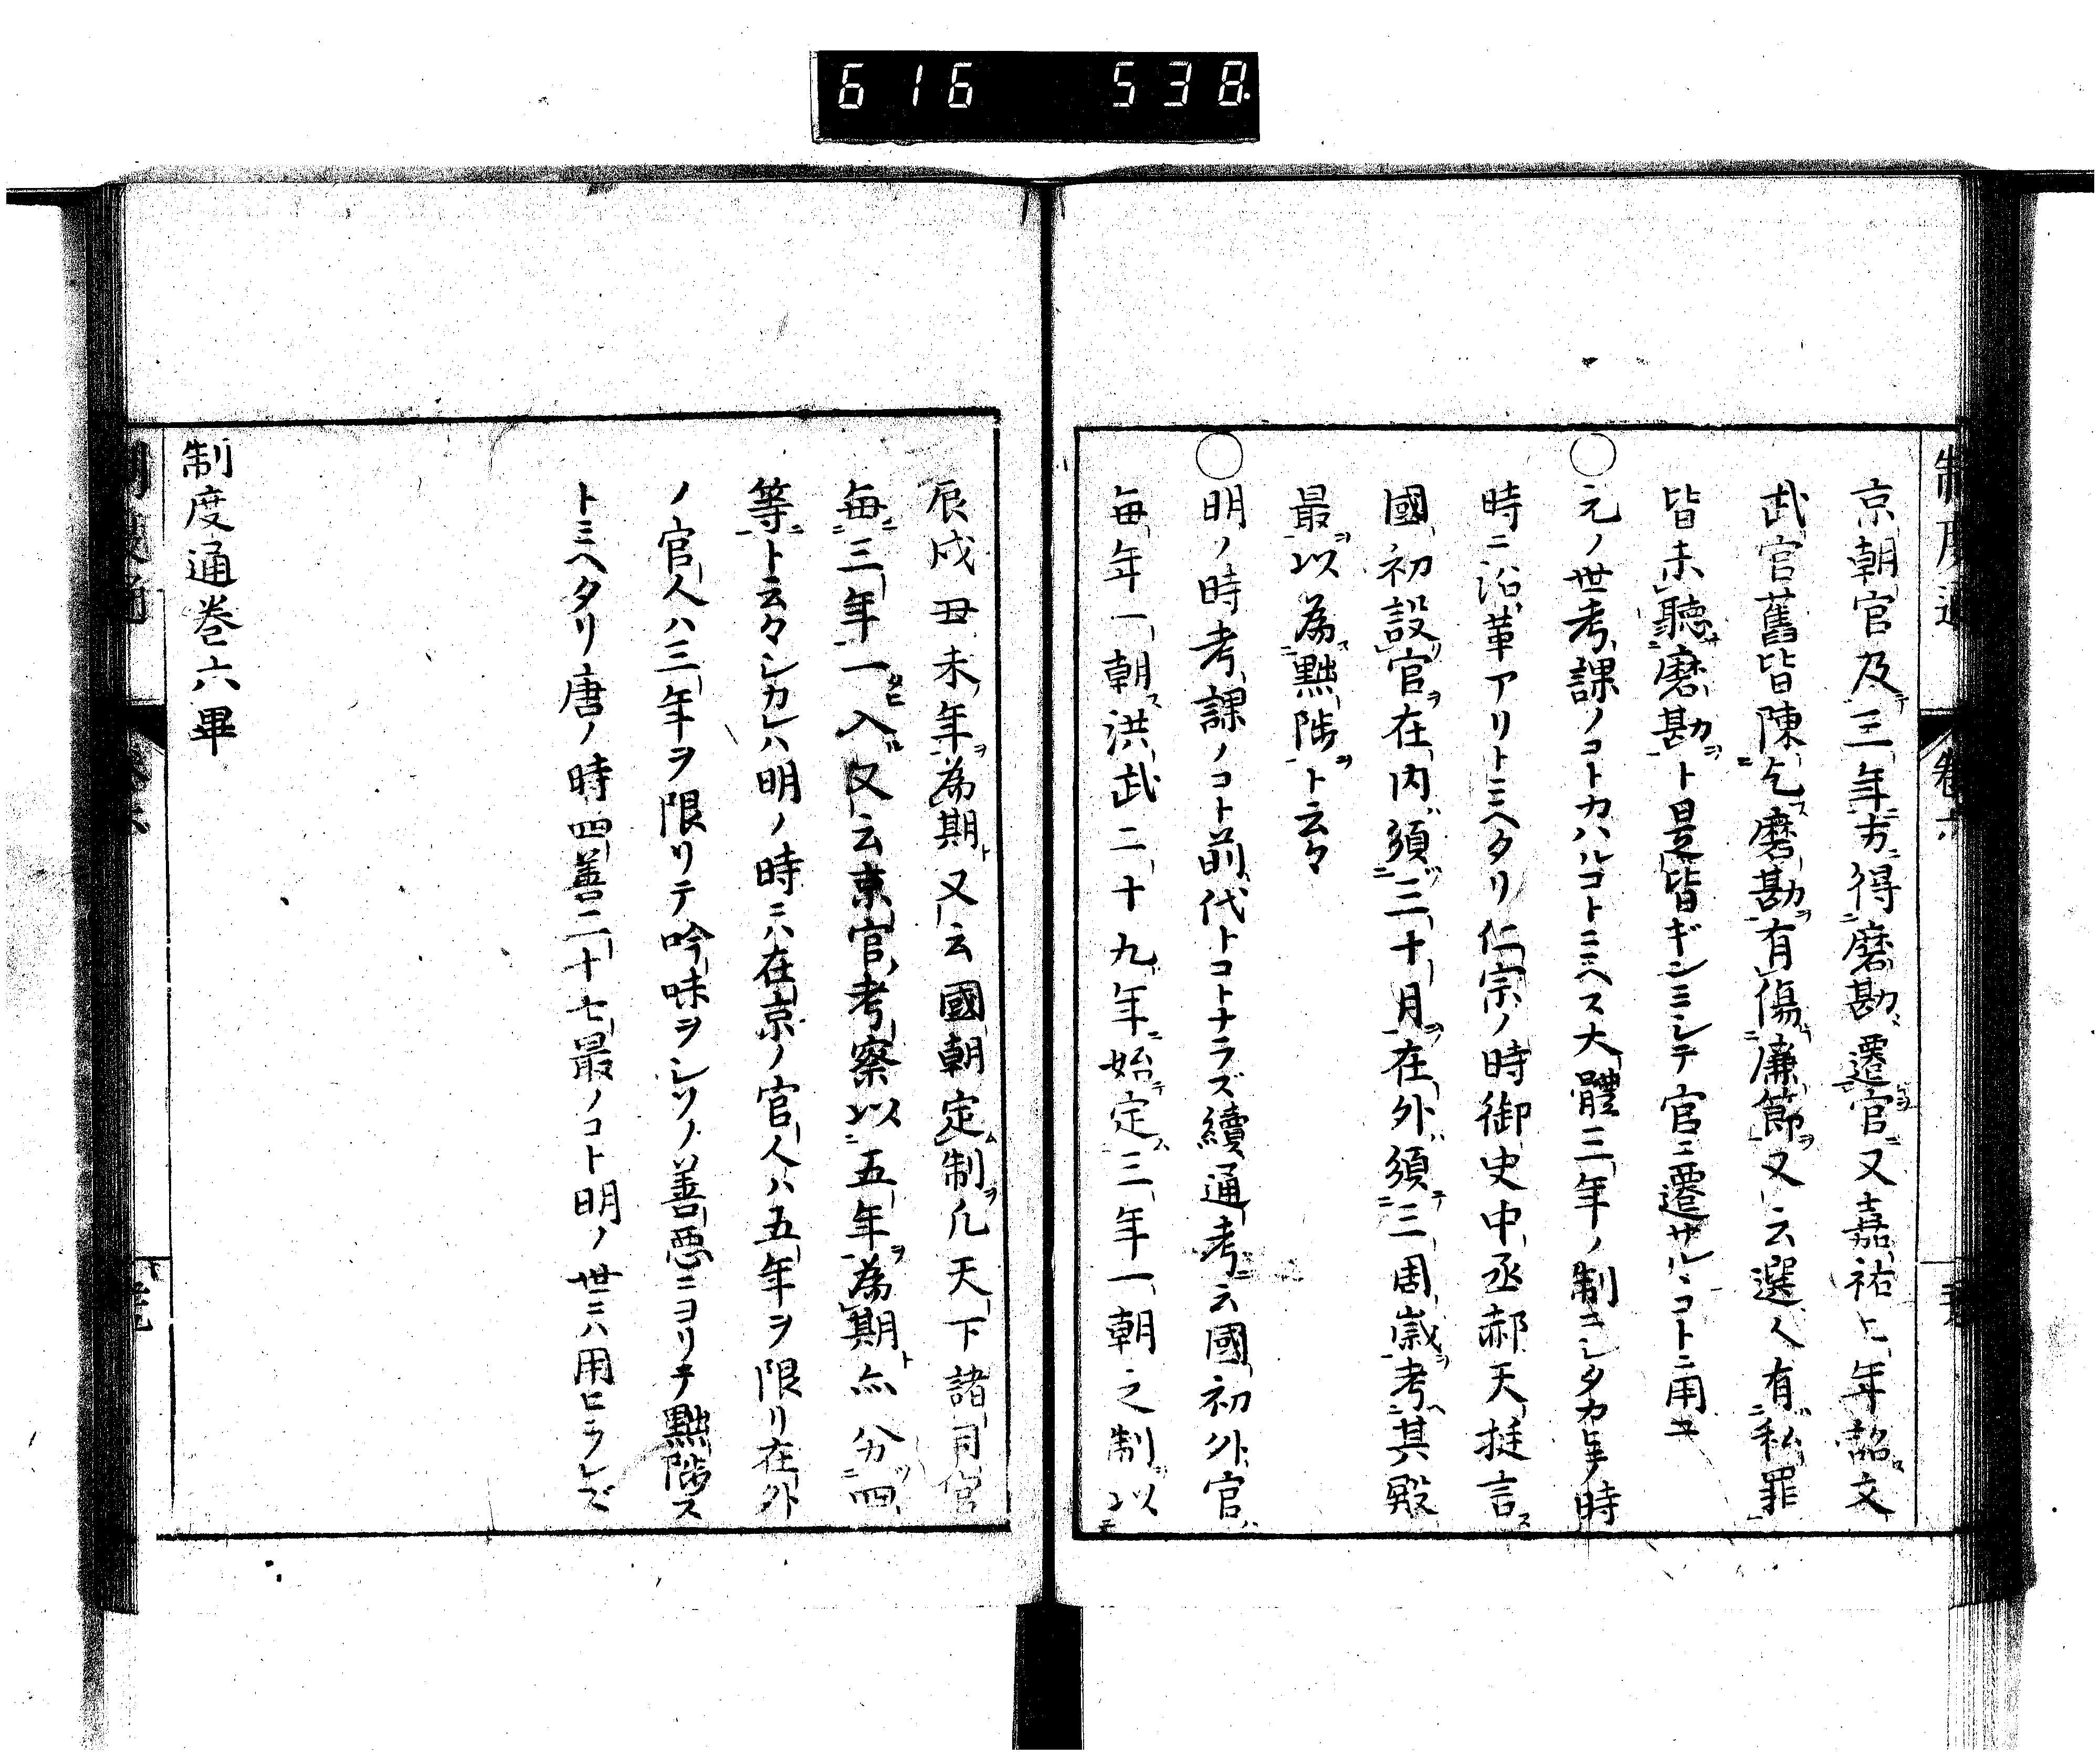 616 538
京朝官及三年方得磨勘遷官又嘉祐七年詔文
武官舊皆陳乞磨勘有傷廉節又云選人有私罪
皆未聽磨勘ト是皆ギンミシテ官ニ遷サルヽコトニ用ユ
〇元ノ世考課ノコトカハルコトミヘス大體三年ノ制ニシタカヒテ時
時ニ沿革アリトミヘタリ仁宗ノ時御史中丞郝天挺言
國初設官在内須三十月在外須三周歳考其殿
最以為黜陟ト云々
〇明ノ時考課ノコト前代トコトナラズ續通考云國初外官
毎年一朝洪武二十九年始定三年一朝之制以
辰戌丑未年為期又云國朝定制凡天下諸司官
毎三年一入又云京官考察以五年為期亦分四
等ト云々シカレハ明ノ時ニハ在京ノ官人ハ五年ヲ限リ在外
ノ官人ハ三年ヲ限リテ吟味ヲシソノ善悪ニヨリテ黜陟ス
トミヘタリ唐ノ時四善二十七最ノコト明ノ世ニハ用ヒラレズ
制度通巻六畢